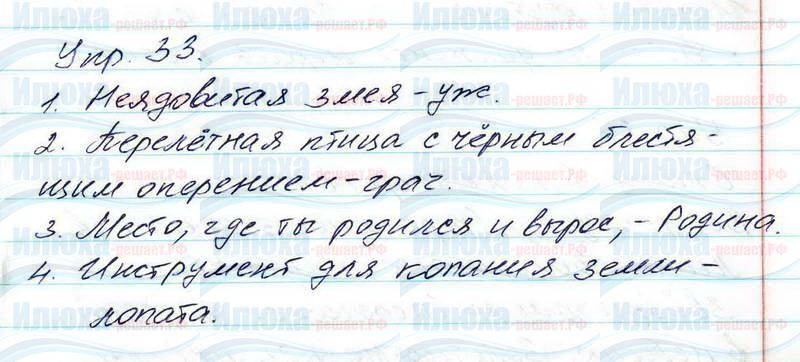 Упр. 33.
1. Неядовитая змея - уж.
2. Перелётная птица с чёрным блестя-
щим оперением - грач.
3. Место, где ты родился и вырос, - Родина.
4. Инструмент для копания земли -
лопата.